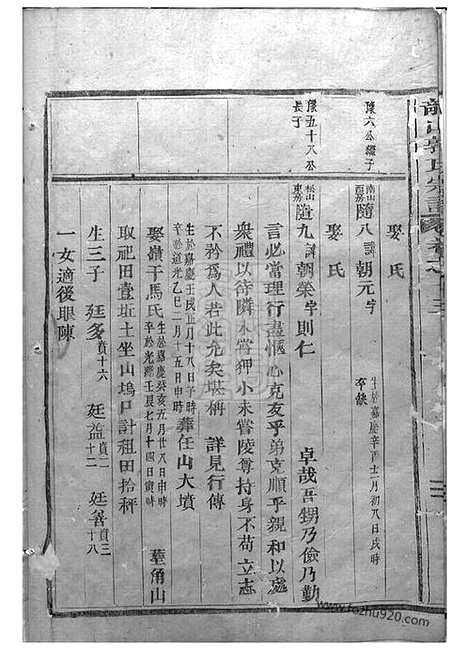 豫六公繼子
隨八諱朝元字 生於嘉慶辛酉十二月初八日戌時
卒缺
娶氏
豫五十八公
長子
隨九諱朝榮字則仁 卓哉吾甥乃儉乃勤
言必當理行盡愜心克友乎弟克順乎親和以處
衆禮以待隣大嘗狎小未嘗陵尊持身不苟立志
不矜爲人若此允矣堪稱 詳見行傳
生於嘉慶壬戌五月十八日申時
卒於道光乙巳二月十五日申時 葬任山大墳
娶嶺干馬氏 生於嘉慶癸亥五月廿八日申時
卒於光緒壬辰七月十四日寅時 塟角山
取祀田壹坵土坐山塢戶計租田拾秤
生三子 廷多賁十六 廷益賁二十二 廷善賁三十八
一女適後垠陳
www.fozhu920.com